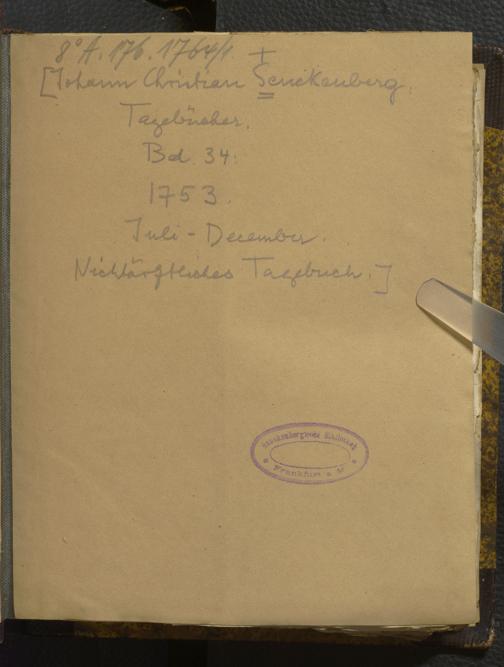 8° A. 176. 1764/1 +
[Johann Christian Senckenberg.
Tagebücher.
Bd. 34.
1753.
Juli - December.
Nichtärztliches Tagebuch.]
Senckenbergische Bibliothek
Frankfurt a. M.